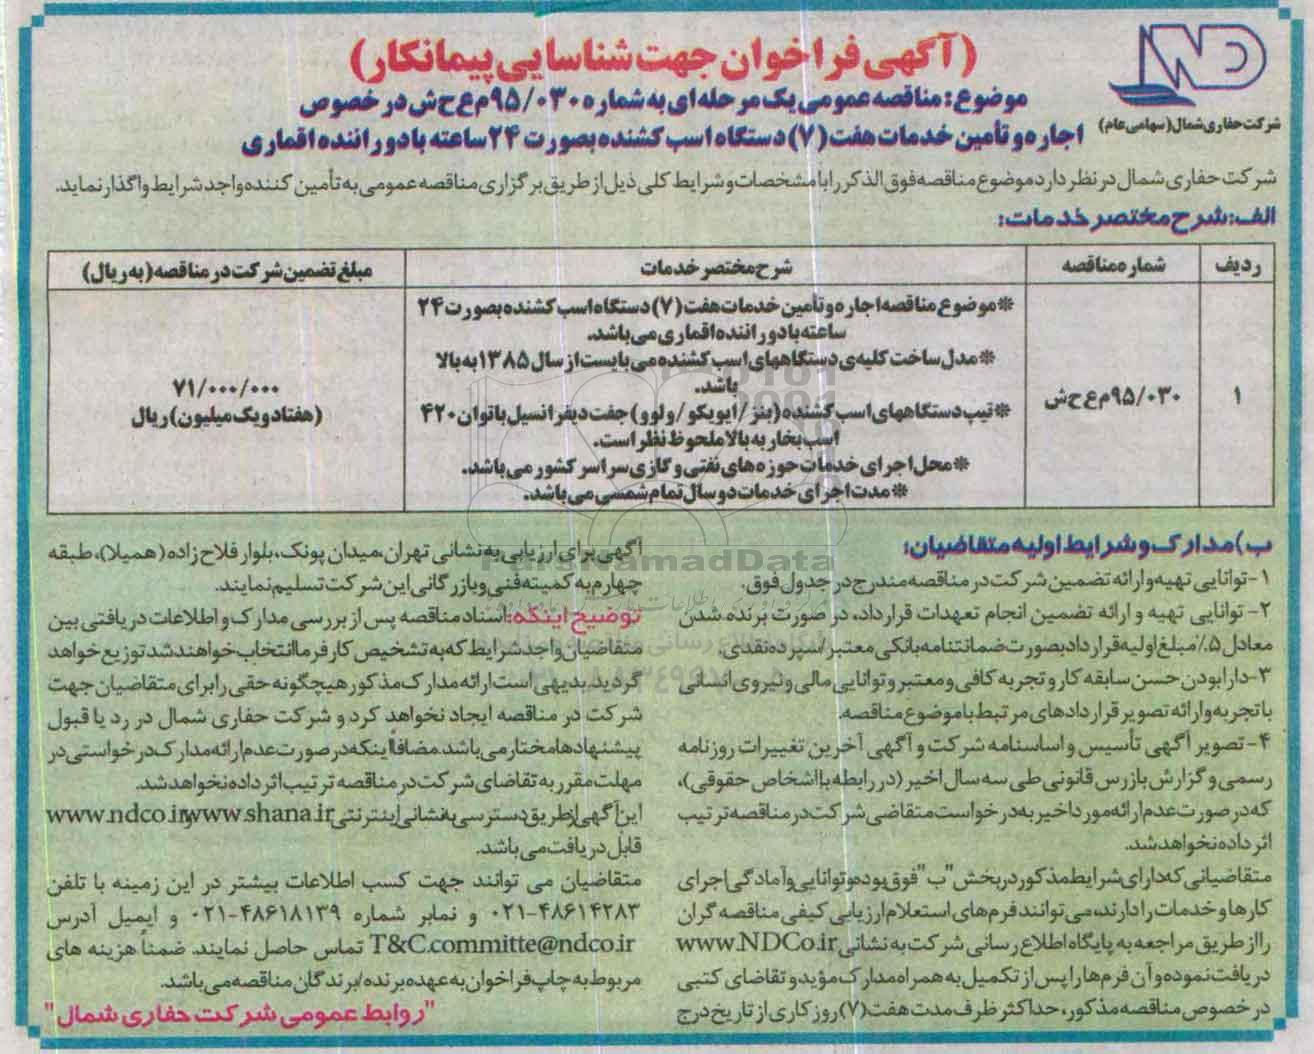 (آگهی فراخوان جهت شناسایی پیمانکار)
موضوع: مناقصه عمومی یک مرحله ای به شماره ۹۵/۰۳۰م ع ح ش در خصوص
اجاره و تأمین خدمات هفت (۷) دستگاه اسب کشنده بصورت ۲۴ ساعته با دو راننده اقماری
NDC
شرکت حفاری شمال (سهامی عام)
شرکت حفاری شمال در نظر دارد موضوع مناقصه فوق الذکر را با مشخصات و شرایط کلی ذیل از طریق برگزاری مناقصه عمومی به تأمین کننده واجد شرایط واگذار نماید.
الف: شرح مختصر خدمات:
ردیف شماره مناقصه شرح مختصر خدمات مبلغ تضمین شرکت در مناقصه (به ریال)
۱
۹۵/۰۳۰م ع ح ش
*موضوع مناقصه اجاره و تأمین خدمات هفت (۷) دستگاه اسب کشنده بصورت ۲۴
ساعته با دو راننده اقماری می باشد.
*مدل ساخت کلیه ی دستگاههای اسب کشنده می بایست از سال ۱۳۸۵ به بالا
باشد.
*تیپ دستگاههای اسب کشنده (بنز/ ایویکو/ ولوو) جفت دیفرانسیل با توان ۴۲۰
اسب بخار به بالا ملحوظ نظر است.
*محل اجرای خدمات حوزه های نفتی و گازی سراسر کشور می باشد.
*مدت اجرای خدمات دو سال تمام شمسی می باشد.
۷۱/۰۰۰/۰۰۰
(هفتاد و یک میلیون) ریال
ب) مدارک و شرایط اولیه متقاضیان:
۱-توانایی تهیه و ارائه تضمین شرکت در مناقصه مندرج در جدول فوق.
۲- توانایی تهیه و ارائه تضمین انجام تعهدات قرارداد، در صورت برنده شدن
معادل ۵٪ مبلغ اولیه قرارداد بصورت ضمانتنامه بانکی معتبر/ سپرده نقدی.
۳-دارا بودن حسن سابقه کار و تجربه کافی و معتبر و توانایی مالی و نیروی انسانی
با تجربه و ارائه تصویر قراردادهای مرتبط با موضوع مناقصه.
۴- تصویر آگهی تأسیس و اساسنامه شرکت و آگهی آخرین تغییرات روزنامه
رسمی و گزارش بازرس قانونی طی سه سال اخیر (در رابطه با اشخاص حقوقی)،
که در صورت عدم ارائه مورد اخیر به درخواست متقاضی شرکت در مناقصه ترتیب
اثر داده نخواهد شد.
متقاضیانی که دارای شرایط مذکور در بخش "ب" فوق بوده و توانایی و آمادگی اجرای
کارها و خدمات را دارند، می توانند فرم های استعلام ارزیابی کیفی مناقصه گران
را از طریق مراجعه به پایگاه اطلاع رسانی شرکت به نشانی www.NDCo.ir
دریافت نموده و آن فرم ها را پس از تکمیل به همراه مدارک مؤید و تقاضای کتبی
در خصوص مناقصه مذکور، حداکثر ظرف مدت هفت (۷) روز کاری از تاریخ درج
آگهی برای ارزیابی به نشانی تهران، میدان پونک، بلوار فلاح زاده (همیلا)، طبقه
چهارم به کمیته فنی و بازرگانی این شرکت تسلیم نمایند.
توضیح اینکه: اسناد مناقصه پس از بررسی مدارک و اطلاعات دریافتی بین
متقاضیان واجد شرایط که به تشخیص کارفرما انتخاب خواهند شد توزیع خواهد
گردید. بدیهی است ارائه مدارک مذکور هیچگونه حقی را برای متقاضیان جهت
شرکت در مناقصه ایجاد نخواهد کرد و شرکت حفاری شمال در رد یا قبول
پیشنهادها مختار می باشد. مضافاً اینکه در صورت عدم ارائه مدارک درخواستی در
مهلت مقرر به تقاضای شرکت در مناقصه ترتیب اثر داده نخواهد شد.
این آگهی از طریق دسترسی به نشانی اینترنتی www.shana.ir و www.ndco.ir
قابل دریافت می باشد.
متقاضیان می توانند جهت کسب اطلاعات بیشتر در این زمینه با تلفن
۰۲۱-۴۸۶۱۴۲۸۳ و نمابر شماره ۰۲۱-۴۸۶۱۸۱۳۹ و ایمیل آدرس
T&C.committe@ndco.ir تماس حاصل نمایند. ضمناً هزینه های
مربوط به چاپ فراخوان به عهده برنده/ برندگان مناقصه می باشد.
"روابط عمومی شرکت حفاری شمال"
ParsNamadData